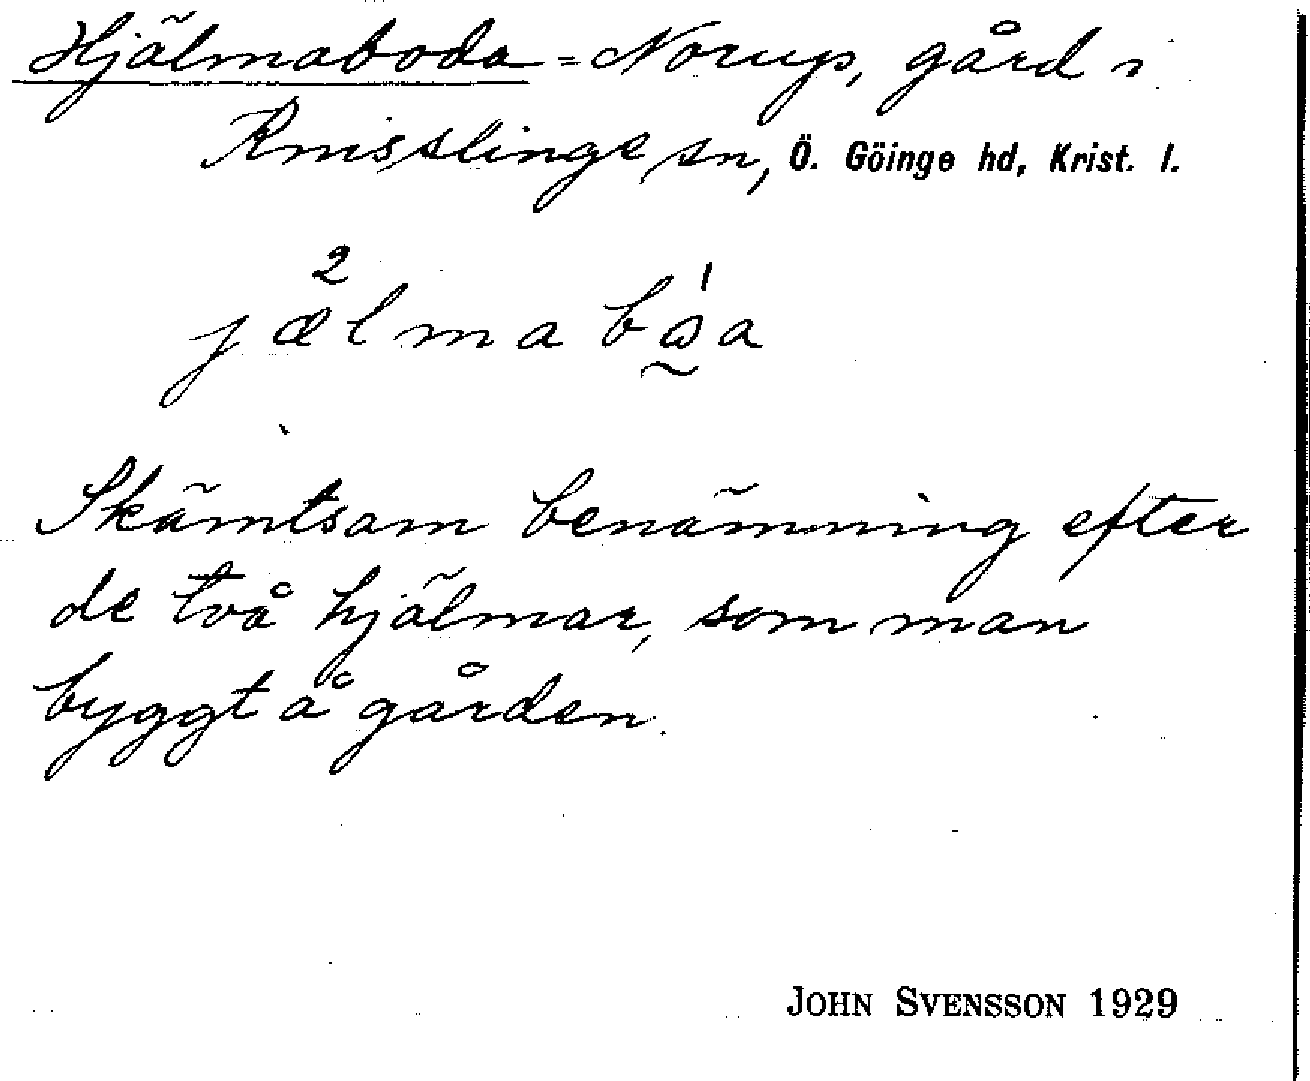 Hjälmaboda = Norup, gård i
Knisslinge sn, Ö. Göinge hd, Krist. l.
Skämtsam benämning efter
de två hjälmar, som man
byggt å gården.
JOHN SVENSSON 1929